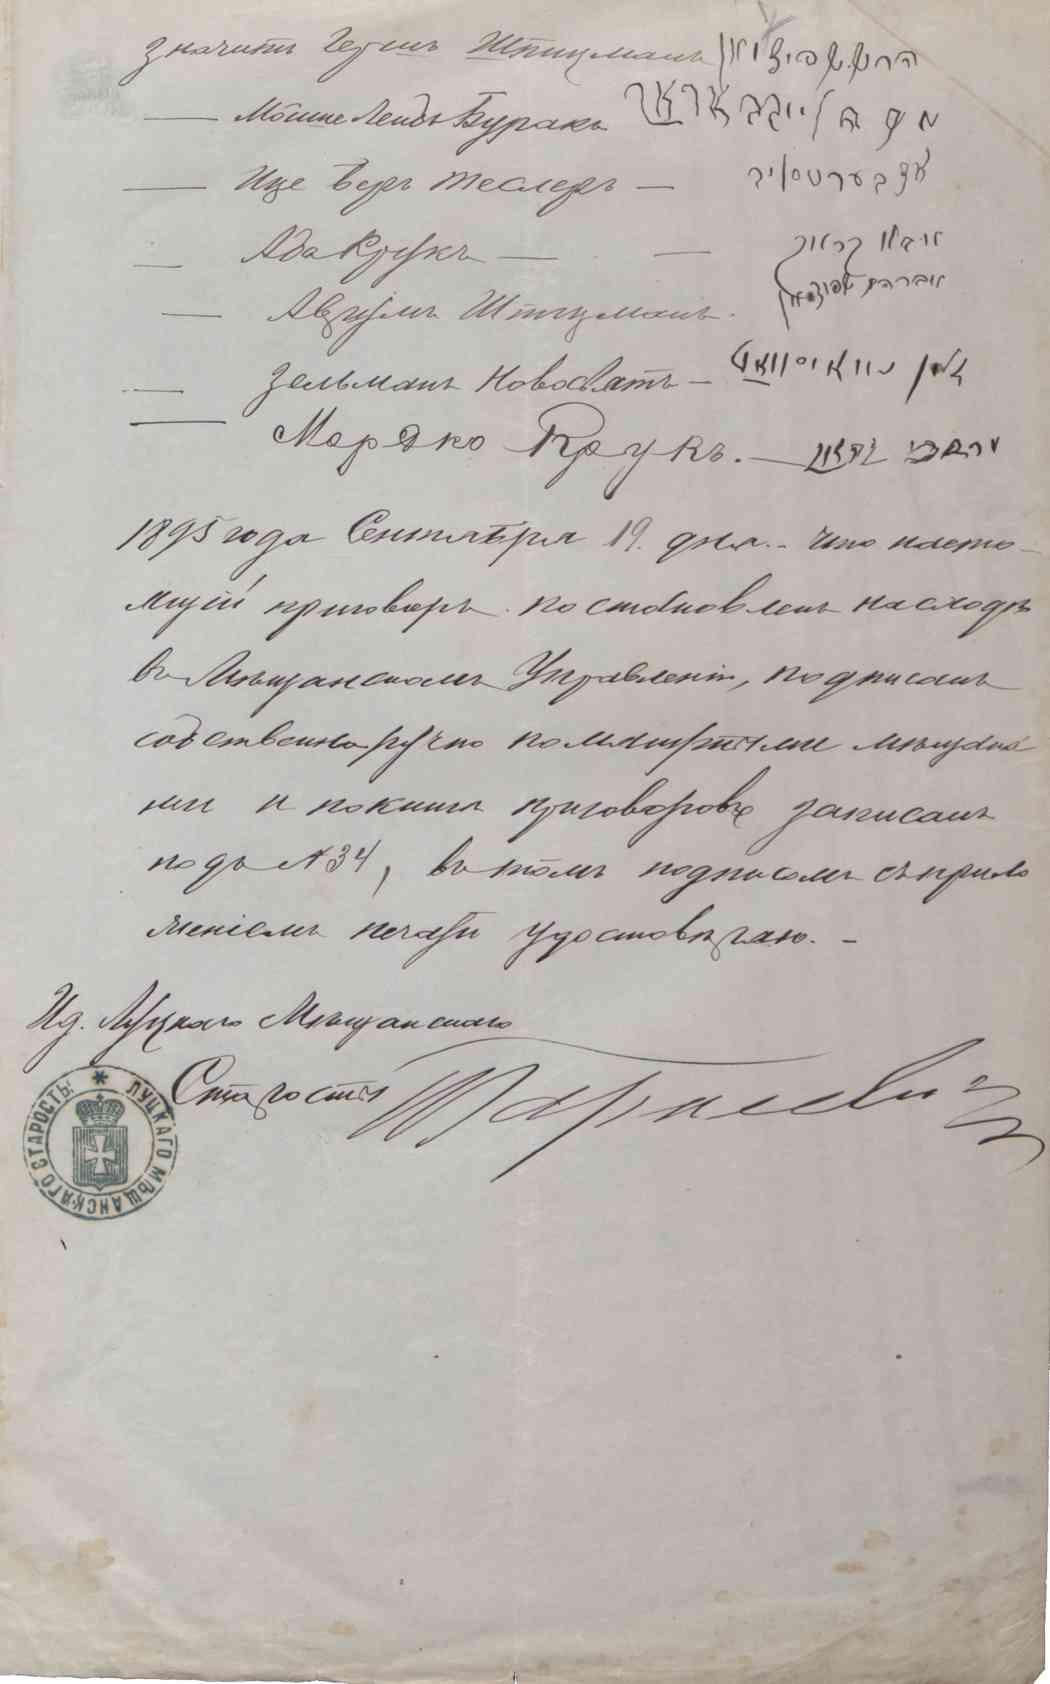 значитъ Гершъ Шпицманъ הרש שפיצמאן
— Мошке Лейбъ Буракъ
— Ице Беръ Теслеръ —
— Аба Крукъ — — אבא קרוק
— Аврумъ Шпицманъ. אברהם שפיצמאן
— Зельманъ Новосвятъ —
— Мордко Крукъ. — מרדכי קרוק
1895 года Сентября 19. дня.- что насто-
ящій приговоръ постановленъ на сходѣ
въ Мѣщанскомъ Управленіи, подписанъ
собственноручно поименованными мѣщана
ми и по книгѣ приговоровъ записанъ
подъ №34, въ томъ подписомъ съ прило
женіемъ печати удостовѣряю. -
Ид. Луцкаго Мѣщанскаго
Старосты
ЛУЦКАГО МѢЩАНСКАГО СТАРОСТЫ